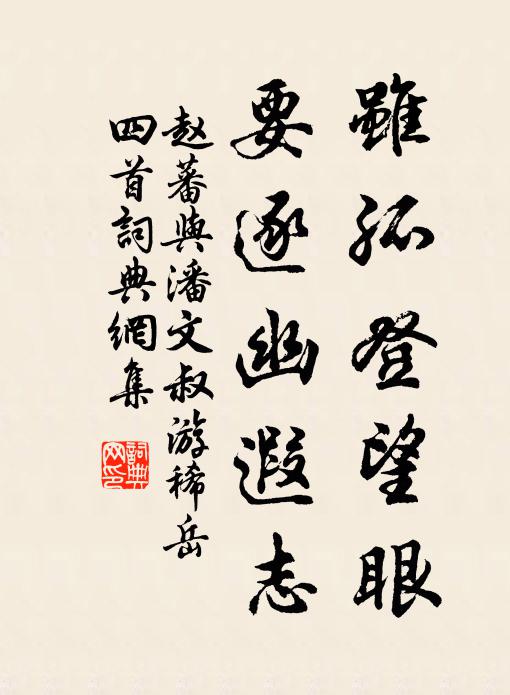 雖孤登望眼
要遂幽遐志
赵蕃與潘文叔游稀岳
四首詞典網集
詞典
网印